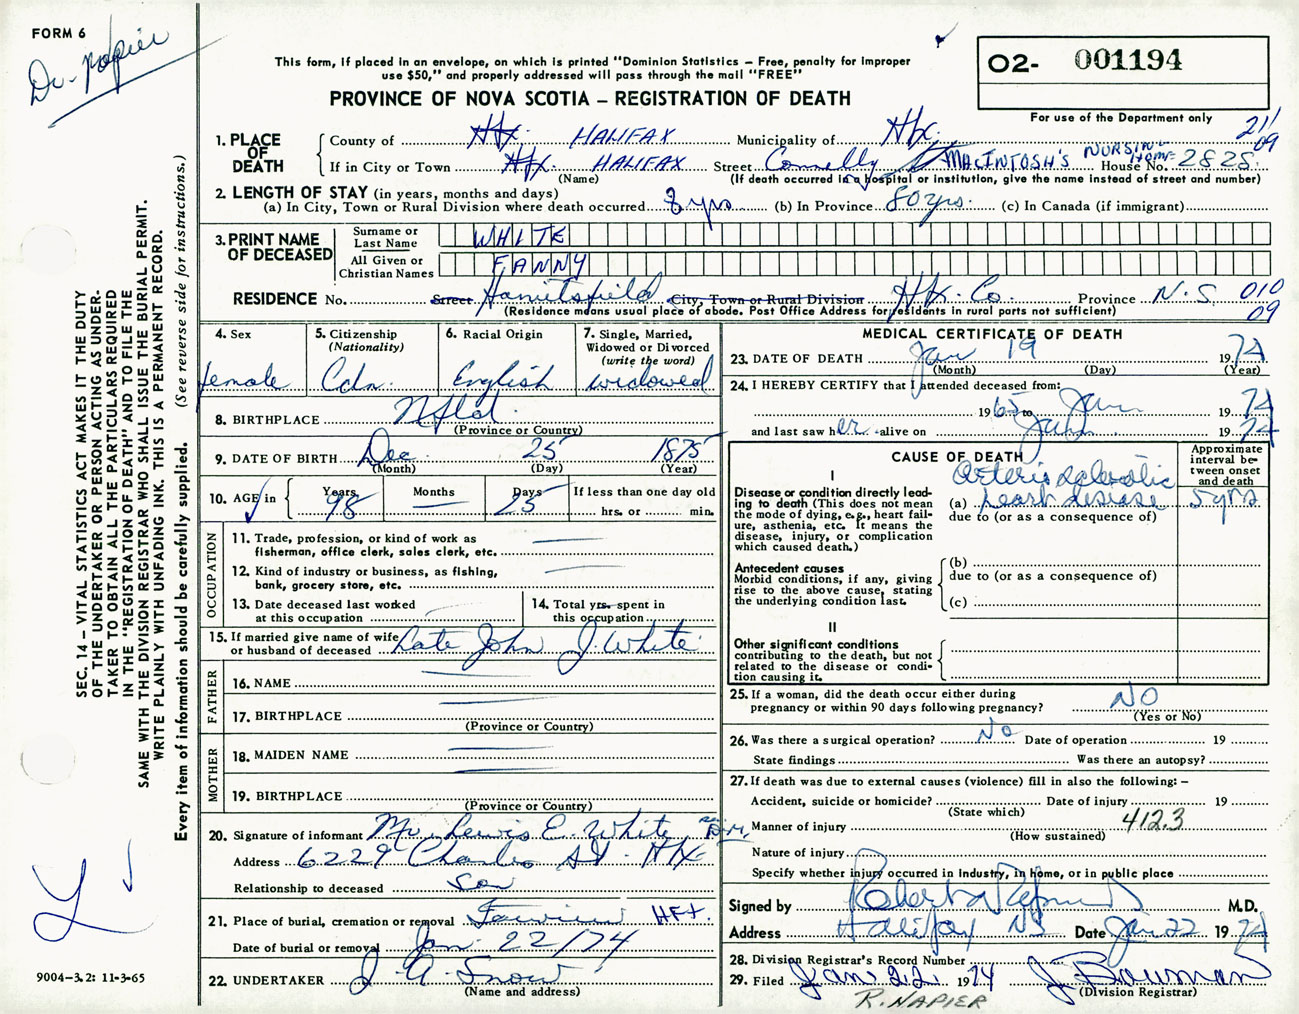 FORM 6
Dr. Napier
This form, if placed in an envelope, on which is printed "Dominion Statistics – Free, penalty for improper
use $50," and properly addressed will pass through the mail "FREE"
PROVINCE OF NOVA SCOTIA – REGISTRATION OF DEATH
O2- 001194
For use of the Department only
211
09
1. PLACE OF DEATH
County of Hfx. HALIFAX Municipality of Hfx.
If in City or Town Hfx. HALIFAX Street Connolly St MACINTOSH'S NURSING HOME House No. 2828
(Name) (If death occurred in a hospital or institution, give the name instead of street and number)
2. LENGTH OF STAY (in years, months and days)
(a) In City, Town or Rural Division where death occurred 8 yrs (b) In Province 80 yrs. (c) In Canada (if immigrant)
3. PRINT NAME OF DECEASED
Surname or Last Name WHITE
All Given or Christian Names FANNY
RESIDENCE No. Street Harrietsfield City, Town or Rural Division Hfx. Co. Province N.S. 010
(Residence means usual place of abode. Post Office Address for residents in rural parts not sufficient) 09
4. Sex female
5. Citizenship (Nationality) Cdn.
6. Racial Origin English
7. Single, Married, Widowed or Divorced (write the word) widowed
8. BIRTHPLACE Nfld.
(Province or Country)
9. DATE OF BIRTH Dec 25 1875
(Month) (Day) (Year)
10. AGE in Years 98 Months Days 25 If less than one day old hrs. or min.
OCCUPATION
11. Trade, profession, or kind of work as
fisherman, office clerk, sales clerk, etc.
12. Kind of industry or business, as fishing,
bank, grocery store, etc.
13. Date deceased last worked
at this occupation
14. Total yrs. spent in
this occupation
15. If married give name of wife
or husband of deceased Late John J. White
FATHER
16. NAME
17. BIRTHPLACE
(Province or Country)
MOTHER
18. MAIDEN NAME
19. BIRTHPLACE
(Province or Country)
20. Signature of informant Mr. Lewis E. White
Address 6229 Charles St. Hfx
Relationship to deceased son
21. Place of burial, cremation or removal Fairview HFX.
Date of burial or removal Jan. 22/74
22. UNDERTAKER J. A. Snow
(Name and address)
MEDICAL CERTIFICATE OF DEATH
23. DATE OF DEATH Jan 19 1974
(Month) (Day) (Year)
24. I HEREBY CERTIFY that I attended deceased from:
1965 to Jan 1974
and last saw her alive on Jan 1974
CAUSE OF DEATH
Approximate interval between onset and death
I
Disease or condition directly leading
to death (This does not
mean the mode of dying, e.g., heart failure,
asthenia, etc. It means the
disease, injury, or complication
which caused death.)
(a) Arteriosclerotic heart disease 5 yrs
due to (or as a consequence of)
Antecedent causes
Morbid conditions, if any, giving
rise to the above cause, stating
the underlying condition last.
(b)
due to (or as a consequence of)
(c)
II
Other significant conditions
contributing to the death, but not
related to the disease or condition
causing it.
25. If a woman, did the death occur either during
pregnancy or within 90 days following pregnancy? NO
(Yes or No)
26. Was there a surgical operation? No Date of operation 19
State findings Was there an autopsy?
27. If death was due to external causes (violence) fill in also the following: –
Accident, suicide or homicide? Date of injury 19
(State which)
Manner of injury 412.3
(How sustained)
Nature of injury
Specify whether injury occurred in industry, in home, or in public place
Signed by Robert Napier M.D.
Address Halifax NS Date Jan 22 1974
28. Division Registrar's Record Number
29. Filed Jan 22 1974 J. Bowman
(Division Registrar)
R. NAPIER
SEC. 14 – VITAL STATISTICS ACT MAKES IT THE DUTY
OF THE UNDERTAKER OR PERSON ACTING AS UNDER-
TAKER TO OBTAIN ALL THE PARTICULARS REQUIRED
IN THE "REGISTRATION OF DEATH" AND TO FILE THE
SAME WITH THE DIVISION REGISTRAR WHO SHALL ISSUE THE BURIAL PERMIT.
WRITE PLAINLY WITH UNFADING INK. THIS IS A PERMANENT RECORD.
Every item of information should be carefully supplied. (See reverse side for instructions.)
9004-3.2: 11-3-65